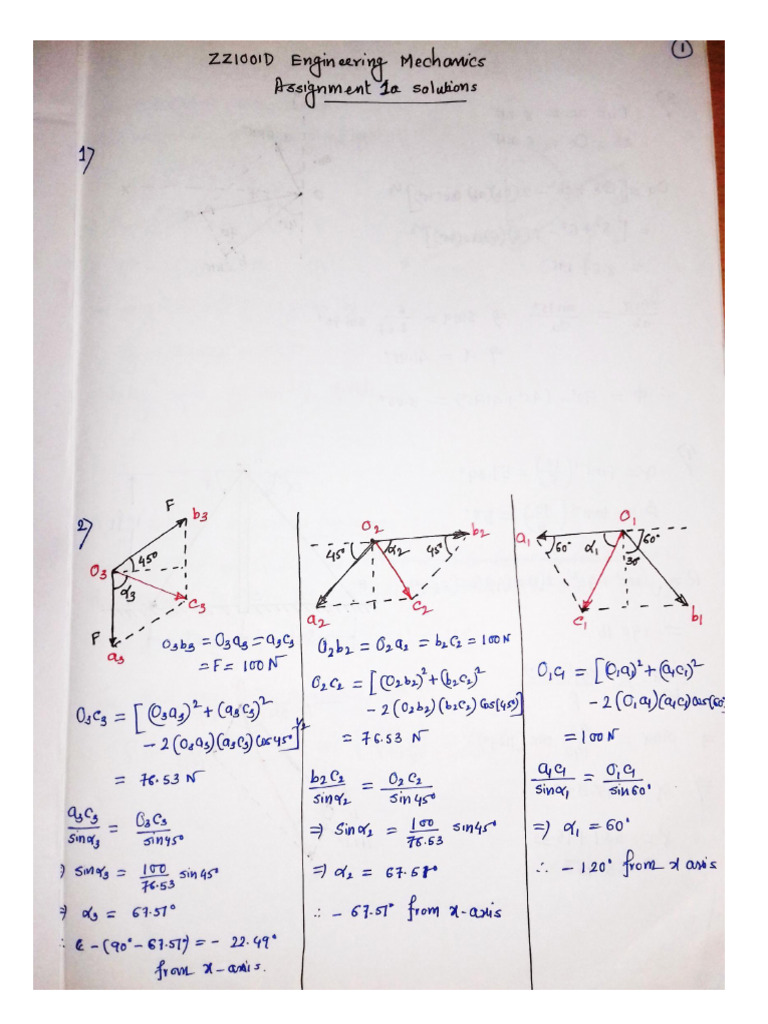 1
ZZ1001D Engineering Mechanics
Assignment 1a solutions
1)
2)
F
b3
45°
O3
α3
c3
F
a3
O3b3 = O3a3 = a3c3
= F = 100 N
O3c3 = [(O3a3)² + (a3c3)²
- 2(O3a3)(a3c3) Cos45°]^1/2
= 76.53 N
a3c3/sinα3 = O3c3/sin45°
⇒ sinα3 = 100/76.53 sin45°
⇒ α3 = 67.51°
∴ - (90° - 67.51°) = - 22.49°
from x-axis.
O2
b2
45°
α2
45°
a2
c2
O2b2 = O2a2 = b2c2 = 100N
O2c2 = [(O2b2)² + (b2c2)²
- 2(O2b2)(b2c2) Cos(45°)]
= 76.53 N
b2c2/sinα2 = O2c2/sin45°
⇒ Sinα2 = 100/76.53 sin45°
⇒ α2 = 67.51°
∴ - 67.51° from x-axis
O1
a1
60°
α1
60°
30°
c1
b1
O1c1 = [(O1a1)² + (a1c1)²
- 2(O1a1)(a1c1) cos(60°
= 100 N
a1c1/sinα1 = O1c1/sin60°
⇒ α1 = 60°
∴ - 120° from x axis